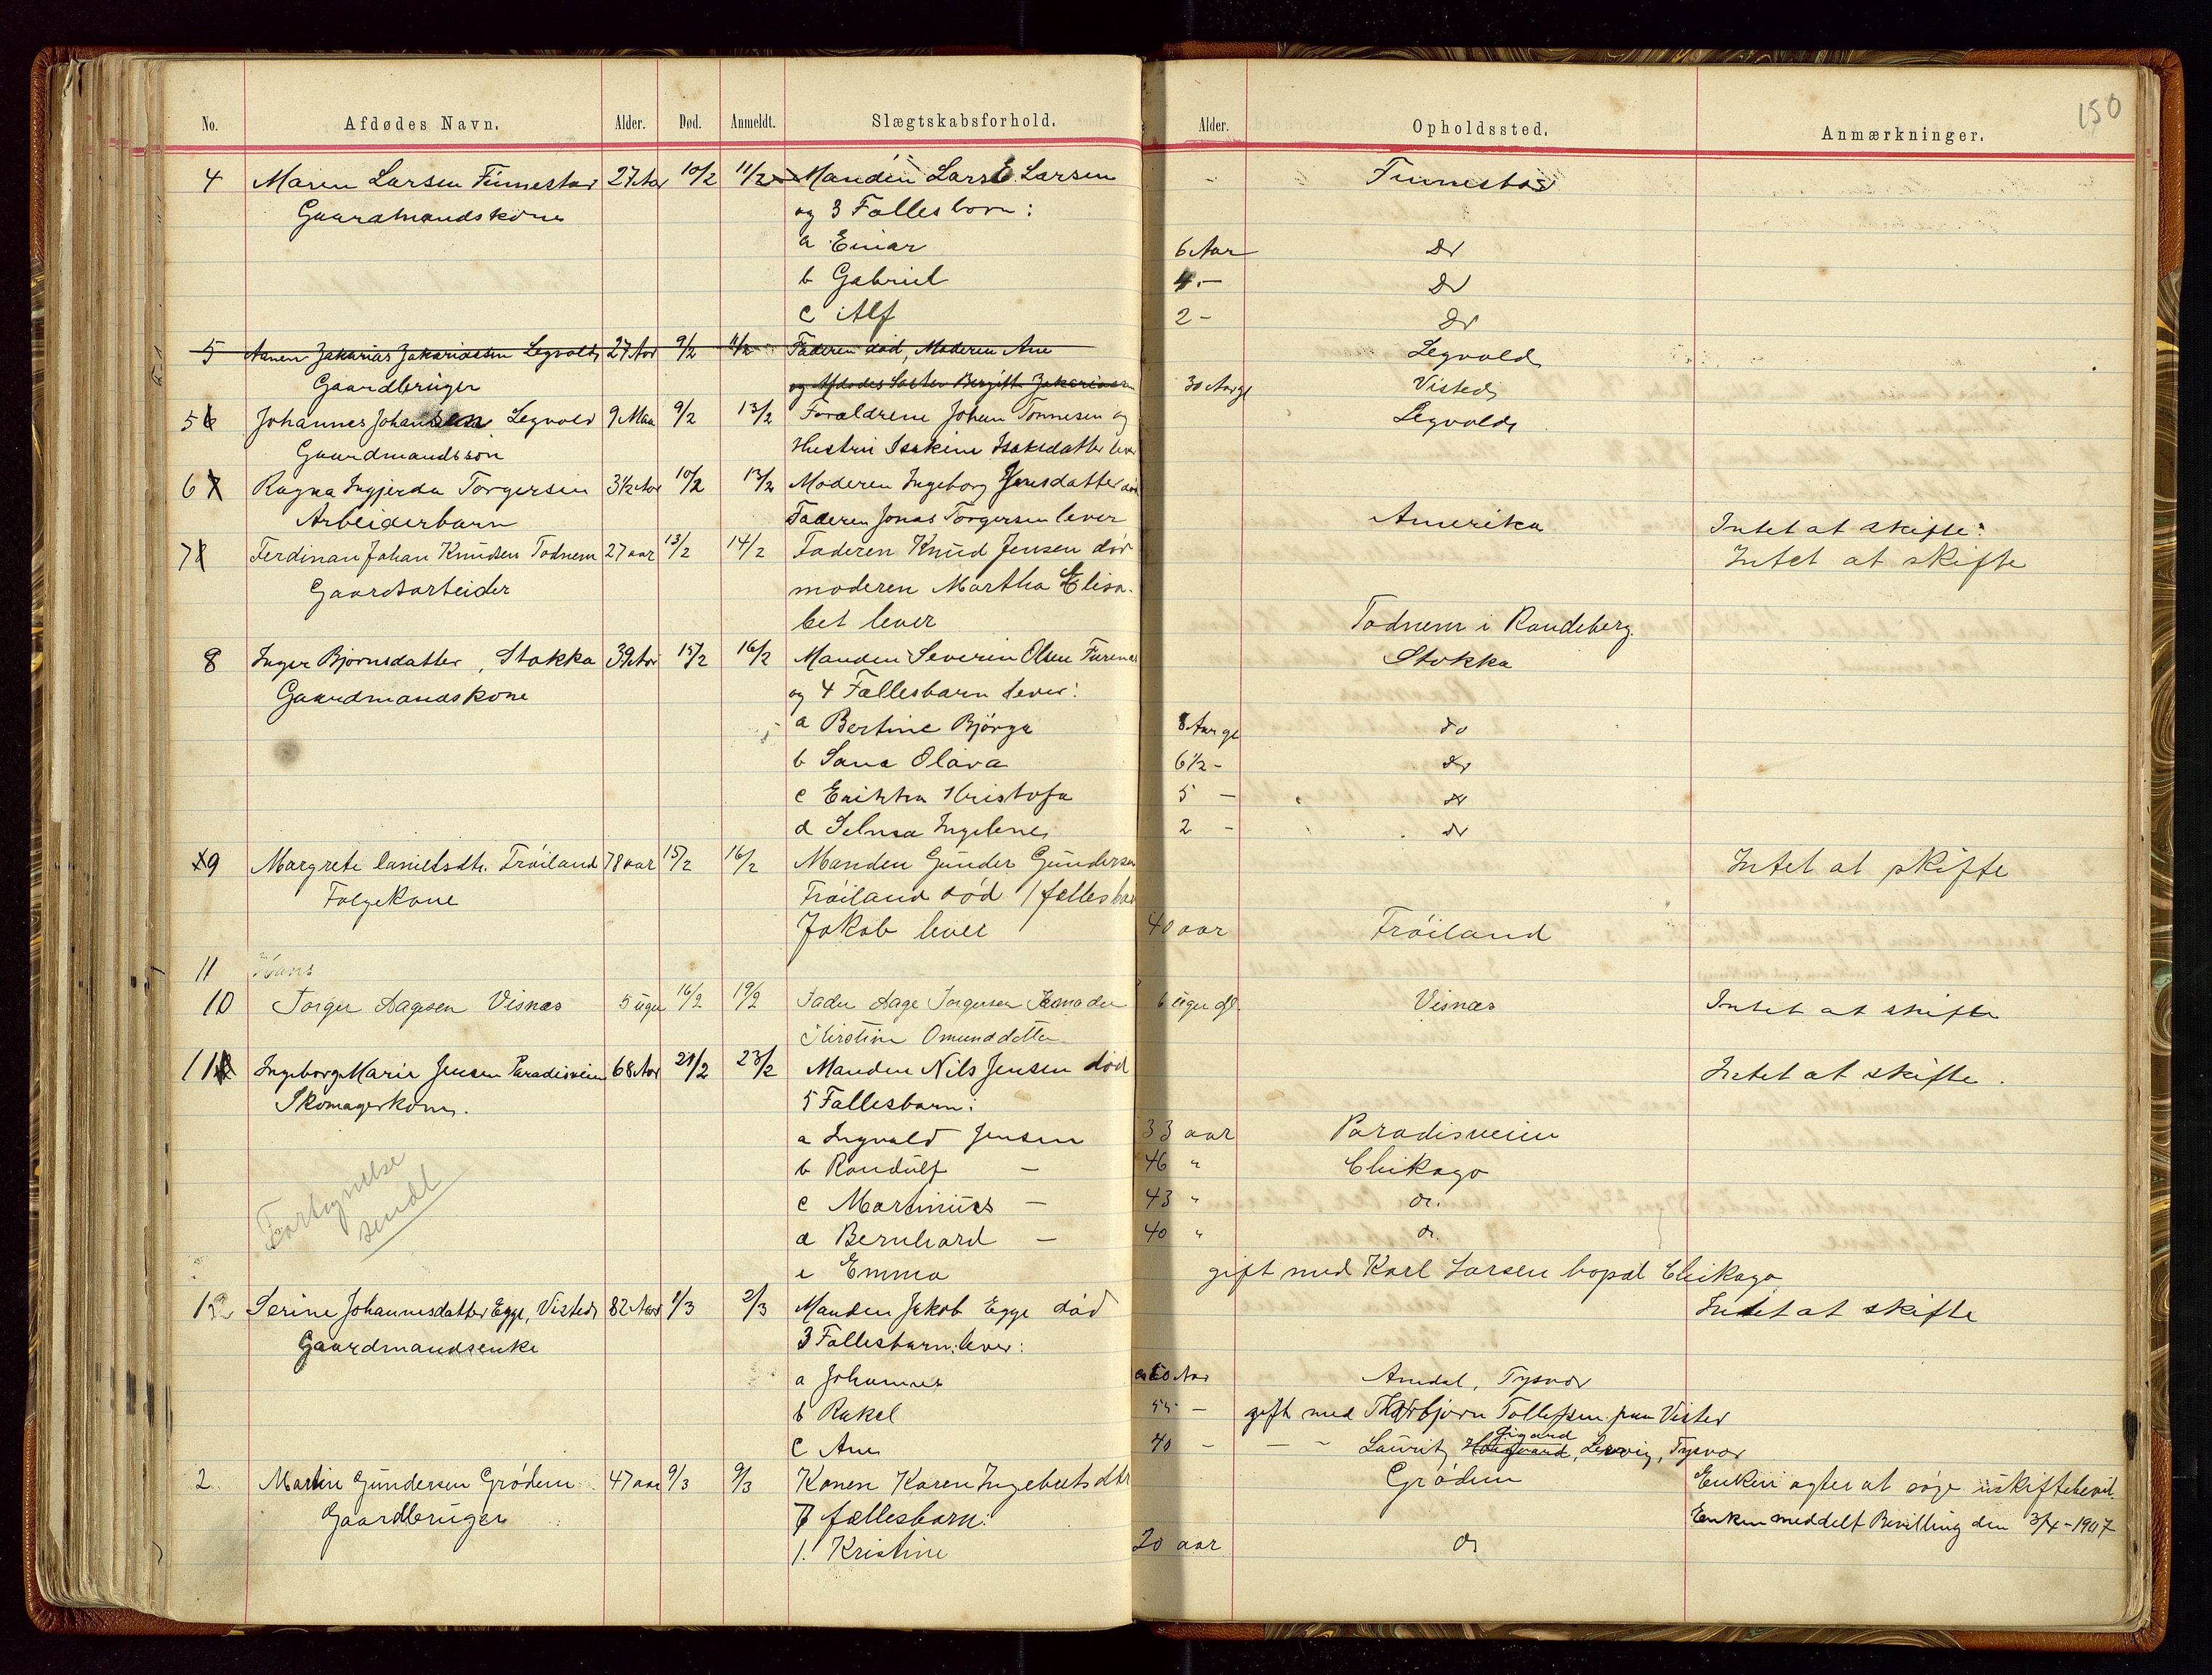 150
No. Afdødes Navn. Alder. Død. Anmeldt. Slægtskabsforhold. Alder. Opholdssted. Anmærkninger.
4 Maren Larsen Finnestad 27 Aar 10/2 11/2 Manden Lars E. Larsen - Finnestad
Gaardmandskone og 3 Fællesbørn:
a Einar 6 Aar do
b Gabriel 4 - do
c Alf 2 - do
5 Zakarias Zakariassen Legvold 27 Aar 9/2 11/2 Faderen død, Moderen Ane Legvold
Gaardbruger og Afdødes Søster Bergitte Zakariassen 30 Aar gl Visted
5 Johannes Johansen Legvold 9 Maa 9/2 13/2 Forældrene Johan Tønnesen og Legvold
Gaardmandssøn Hustru Isakine Isaksdatter lever
6 Ragna Ingjerda Torgersen 3 1/2 Aar 10/2 13/2 Moderen Ingeborg Jonsdatter død
Arbeiderbarn Faderen Jonas Torgersen lever Amerika Intet at skifte.
7 Ferdinan Johan Knudsen Todnem 27 aar 13/2 14/2 Faderen Knud Jensen død Intet at skifte
Gaardsarbeider moderen Martha Elisa-
bet lever Todnem i Randeberg.
8 Inger Bjørnsdatter, Stokka 39 Aar 15/2 16/2 Manden Severin Olsen Furenes Stokka
Gaardmandskone og 4 Fællesbarn lever:
a Bertine Bjørga 8 Aar gl do
b Sana Olava 6 1/2 - do
c Erikka Kristofa 5 - do
d Selma Ingelene 2 - do
9 Margrete Danielsdtr. Trøiland 78 aar 15/2 16/2 Manden Gunder Gundersen Intet at skifte
Følgekone Trøiland død 1 fælles barn
Jakob lever 40 aar Trøiland
11 Hans
10 Torger Aagesen Visnes 5 uger 16/2 19/2 Fader Aage Torgersen Visnes Intet at skifte
Kirstine Omunddatter
11 Ingeborg Marie Jensen Paradisveien 68 Aar 21/2 23/2 Manden Nils Jensen død Intet at skifte.
Skomagerkone. 5 Fællesbarn:
a Ingvald Jensen 33 aar Paradisveien
b Randulf - 46 " Chikago
c Martinius - 43 " do.
d Bernhard - 40 " do.
e Emma gift med Karl Larsen bopæl Chikago
Forsynelse
sendt
12 Serine Johannesdatter Egge, Visted 82 Aar 1/3 2/3 Manden Jakob Egge død Intet at skifte
Gaardmandsenke 3 Fællesbarn lever:
a Johannes 60 Aar Amdal, Tysvær
b Rakel 55 - gift med Thorbjørn Tollefsen paa Visted
c Ane 40 - - - - Laurits Gigand, Lervig, Tysvær
2 Martin Gundersen Grødem 47 aar 9/3 9/3 Konen Karen Ingebretsdtr Grødem Enken agter at søge uskiftebevil.
Gaardbruger 7 fællesbarn: Enken meddelt Bevilling den 3/4-1907
1. Kristine 20 aar do